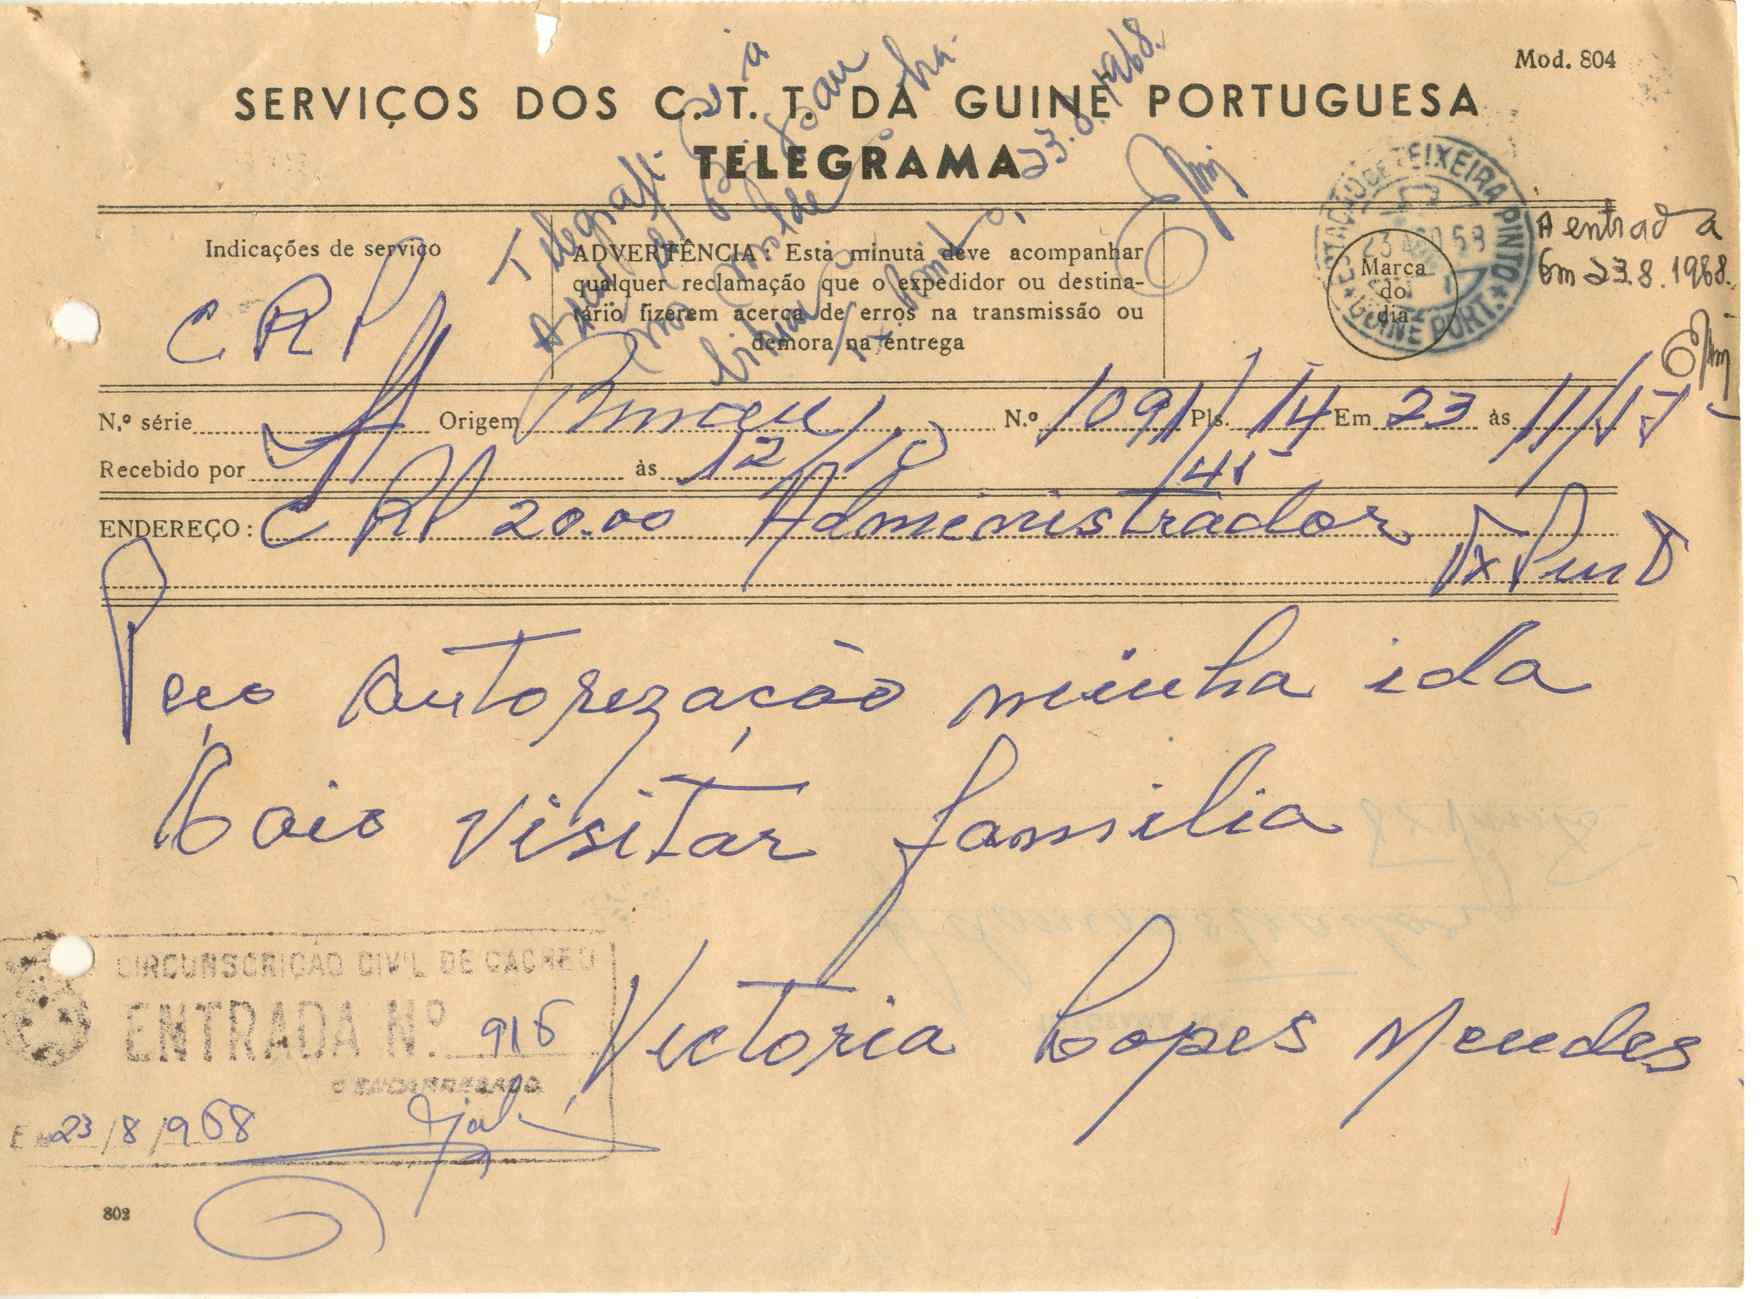 Mod. 804
SERVIÇOS DOS C. T. T. DA GUINÉ PORTUGUESA
TELEGRAMA
23.8.1968.
ESTAÇÃO DE TEIXEIRA PINTO
GUINÉ PORT.
Marca
do
dia
A entrada
Em 23.8.1968.
Indicações de serviço
CRP
ADVERTÊNCIA: Esta minuta deve acompanhar
qualquer reclamação que o expedidor ou destina-
tário fizerem acerca de erros na transmissão ou
demora na entrega
N.º série Origem Bissau N.º 1091 Pls. 14 Em 23 às 11/15
Recebido por às 12/10
ENDEREÇO: CRP 20.00 Administrador
Tx Pinto
Peço autorização minha ida
Caió visitar familia
Victoria Lopes Mendes
CIRCUNSCRIÇÃO CIVIL DE CACHEU
ENTRADA N.º 916
O ENCARREGADO
Em 23/8/968
803